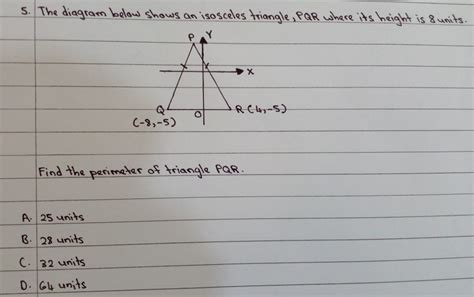 5. The diagram below shows an isosceles triangle, PQR where its height is 8 units.
P Y
X
Q O R (4,-5)
(-8,-5)
Find the perimeter of triangle PQR.
A. 25 units
B. 28 units
C. 32 units
D. 64 units